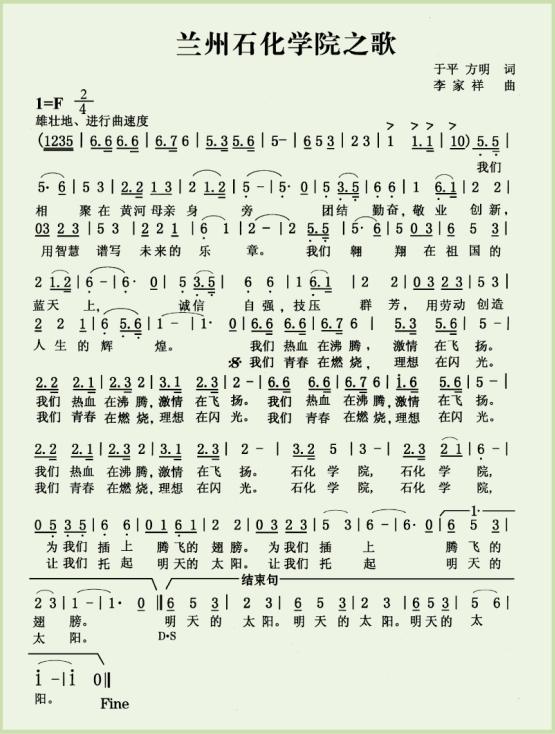 兰州石化学院之歌
于平 方明 词
李家祥 曲
1=F 2/4
雄壮地、进行曲速度
(1235 | 6.6 6.6 | 6.7 6 | 5.3 5.6 | 5- | 653 5 | 23 | 1 | 1.1 | 10) 5.5 |
我们
5· 6 | 5 3 | 2.2 1 3 | 2 1.2 | 5 - | 5· 0 | 5 3.5 | 6 6 | 1 6.1 | 2 2 |
相 聚在 黄河 母亲 身 旁 团结 勤奋, 敬业 创新,
03 23 | 5 3 | 2.3 2 1 | 6 1 | 2 - | 2· 5.5 | 5· 6 | 1 03 | 6 5 3 |
用智慧 谱写 未来的 乐 章。 我们 翱 翔 在 祖国的
2 1.2 | 6 - | 6· 0 | 5 3.5 | 6 | 6 | 1 6.1 | 2 2 | 03 23 | 5 23 |
蓝天 上, 诚信 自强, 技压 群芳, 用劳动 创造
2 2 3 2 1 | 6 5.6 | 1 - | 1· 0 | 6.6 6.6 | 6.6 7 6 | 5.3 5.6 | 5 - |
人生的辉 煌。 我们 热血 在沸腾, 激情 在飞 扬。
𝄋 我们 青春 在燃烧, 理想 在闪 光。
2.2 2.1 | 2.3 2 | 2.3 2.1 | 2 - | 6.6 6.6 | 6.6 7 6 | i.6 5.6 | 5 - |
我们 热血 在沸 腾, 激情 在飞 扬。 我们 热血 在沸 腾, 激情 在飞 扬。
我们 青春 在燃 烧, 理想 在闪 光。 我们 青春 在燃 烧, 理想 在闪 光。
2.2 2.1 | 2.3 2 | 2.3 2.1 | 2 - | 3.2 5 | 3 - | 2.3 21 | 6 - |
我们 热血 在沸 腾, 激情 在飞 扬。 石化 学 院, 石化 学 院,
我们 青春 在燃 烧, 理想 在闪 光。 石化 学 院, 石化 学 院,
0 5 3 5 | 6 6 | 01 6 1 | 2 2 | 03 23 | 5 3 | 6 - | 6· 0 | 6 5 3 |
1·
为我们 插上 腾飞的 翅膀。 为我们 插 上 腾飞的
让我们 托起 明天的 太阳。 让我们 托 起 明天的
结束句
2 3 | 1 - | 1· 0 || 6 5 3 | 2 3 | 6 5 3 | 2 3 | 6 5 3 | 5 |
翅 膀。 明天的 太阳。 明天的 太阳。 明天的 太
太 阳。 D·S
i - | i 0 ||
阳。 Fine